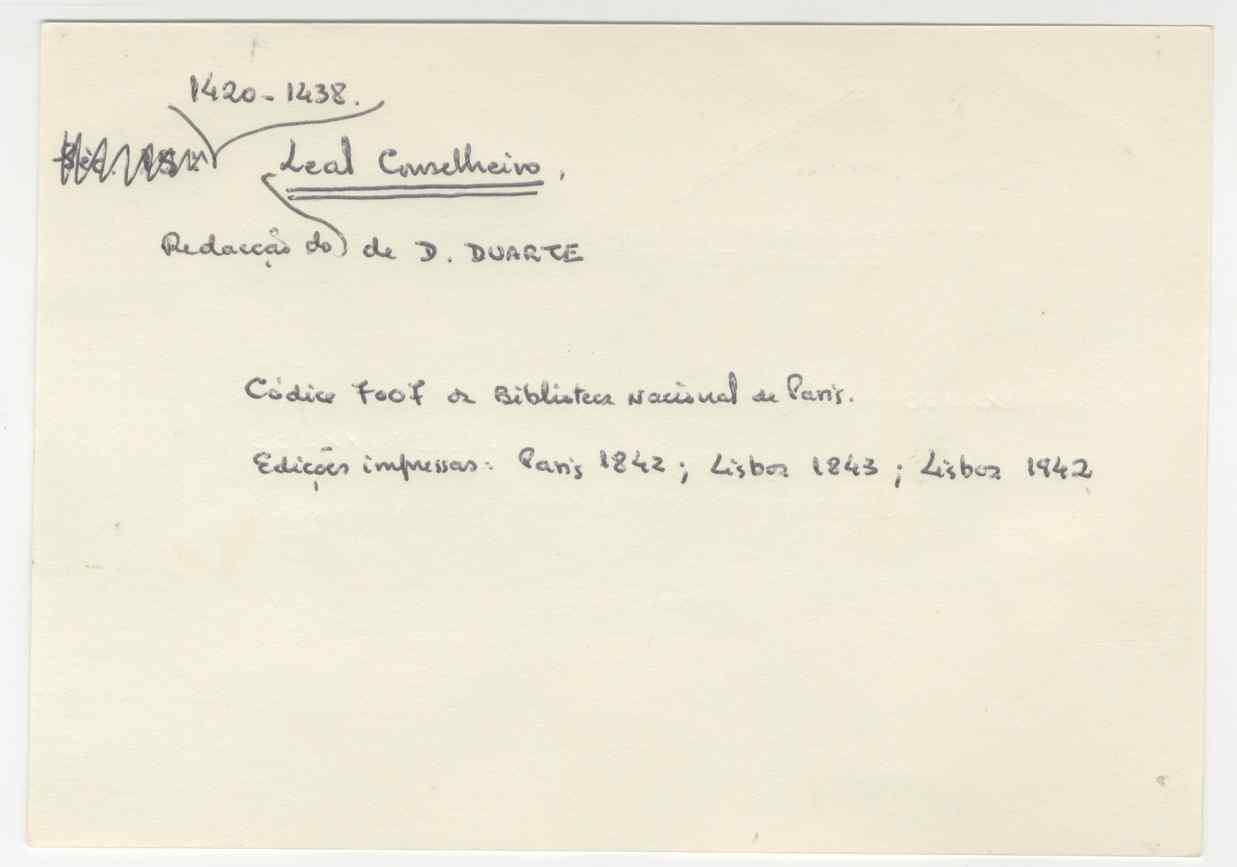 1420-1438.
Leal Conselheiro,
Redacção do de D. DUARTE
Códice 7007 da Biblioteca Nacional de Paris.
Edições impressas: Paris 1842; Lisboa 1843; Lisboa 1942